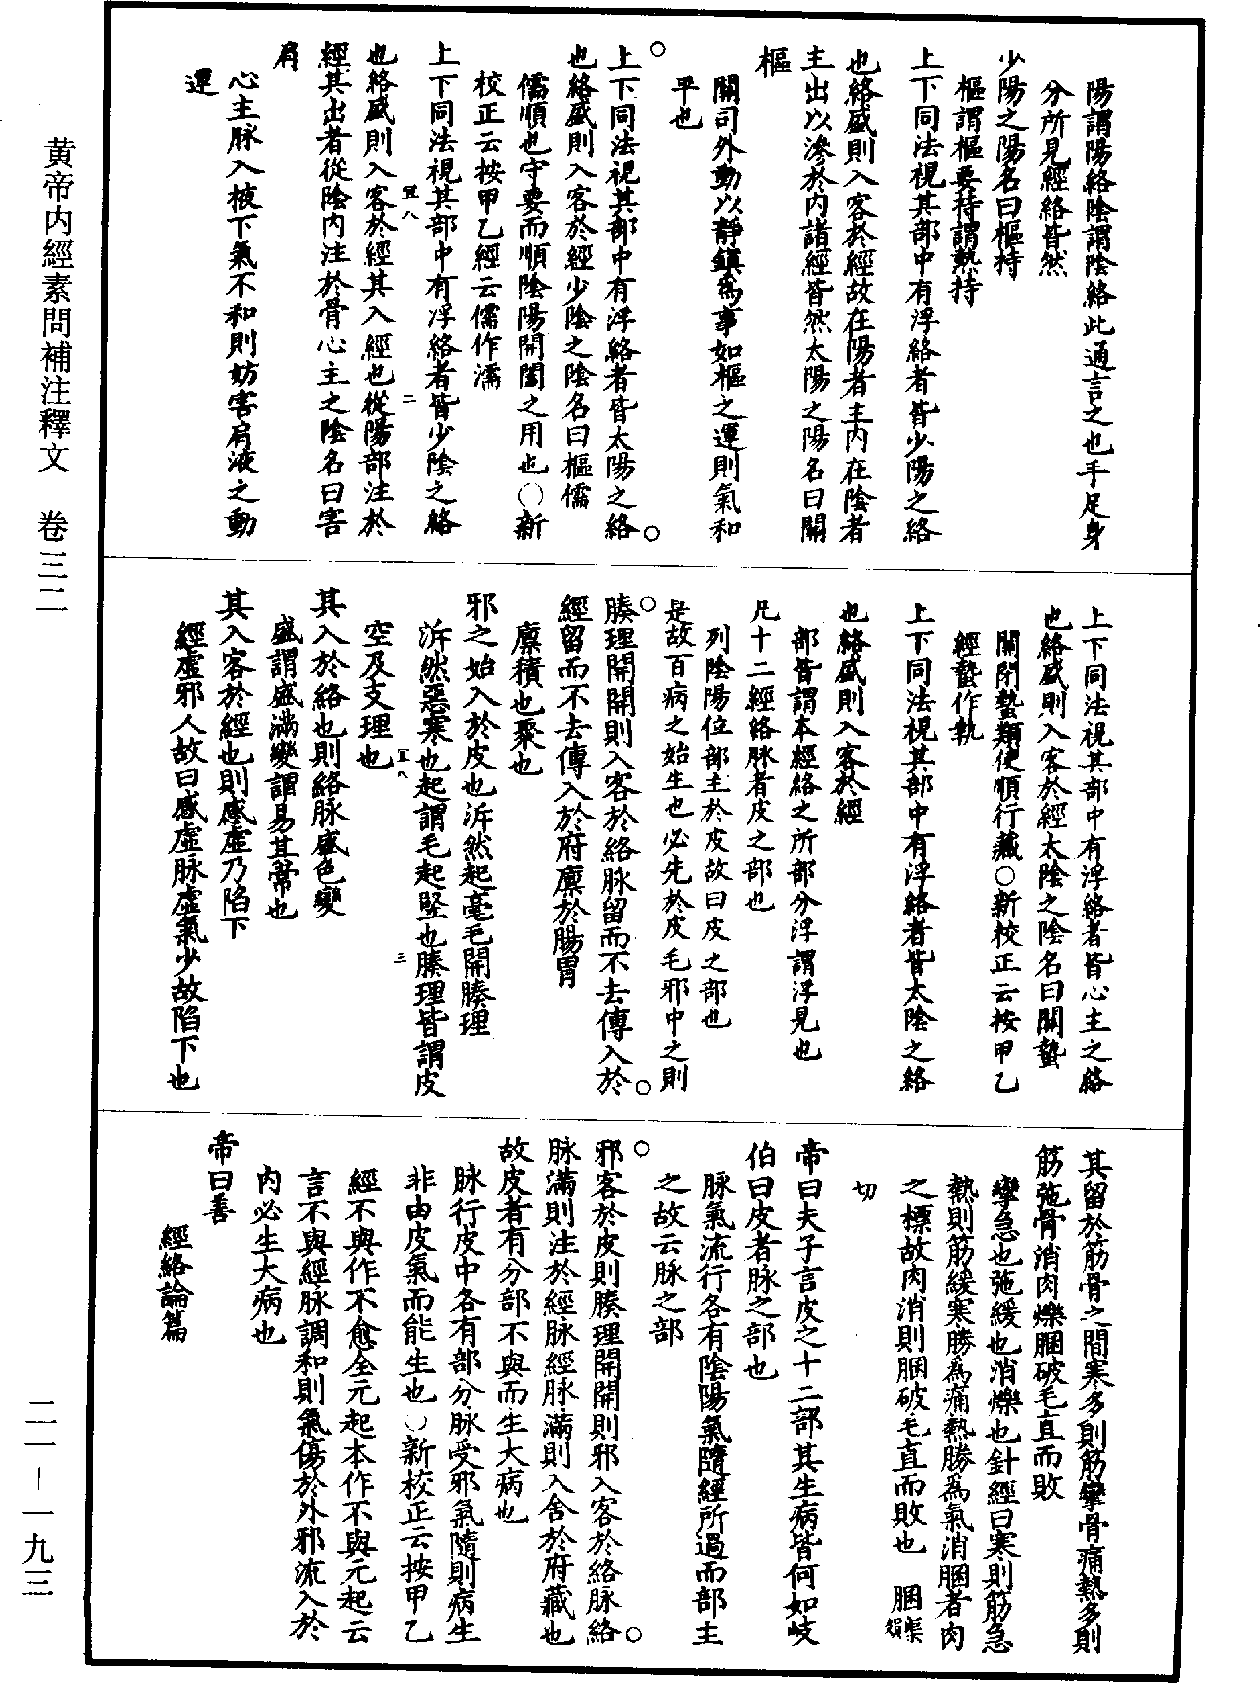 黃帝内經素問補注釋文　卷三二
二一—一九三
陽謂陽絡陰謂陰絡此通言之也手足身
分所見經絡皆然
少陽之陽名曰樞持
樞謂樞要持謂執持
上下同法視其部中有浮絡者皆少陽之絡
也絡盛則入客於經故在陽者主內在陰者
主出以滲於內諸經皆然太陽之陽名曰關
樞
關司外動以靜鎮為事如樞之運則氣和
平也
上下同法視其部中有浮絡者皆太陽之絡
也絡盛則入客於經少陰之陰名曰樞儒
儒順也守要而順陰陽開闔之用也○新
校正云按甲乙經云儒作濡
上下同法視其部中有浮絡者皆少陰之絡
也絡盛則入客於經其入經也從陽部注於
經其出者從陰內注於骨心主之陰名曰害
肩
心主脉入掖下氣不和則妨害肩液之動
運
上下同法視其部中有浮絡者皆心主之絡
也絡盛則入客於經太陰之陰名曰關蟄
關閉蟄類使順行藏○新校正云按甲乙
經蟄作執
上下同法視其部中有浮絡者皆太陰之絡
也絡盛則入客於經
部皆謂本經絡之所部分浮謂浮見也
凡十二經絡脉者皮之部也
列陰陽位部主於皮故曰皮之部也
是故百病之始生也必先於皮毛邪中之則
腠理開開則入客於絡脉留而不去傳入於
經留而不去傳入於府廩於腸胃
廩積也聚也
邪之始入於皮也泝然起毫毛開腠理
泝然惡寒也起謂毛起竪也腠理皆謂皮
空及支理也
其入於絡也則絡脉盛色變
盛謂盛滿變謂易其常也
其入客於經也則感虛乃陷下
經虛邪入故曰感虛脉虛氣少故陷下也
其留於筋骨之間寒多則筋攣骨痛熱多則
筋弛骨消肉爍䐃破毛直而敗
攣急也弛緩也消爍也針經曰寒則筋急
熱則筋緩寒勝為痛熱勝為氣消䐃者肉
之標故肉消則䐃破毛直而敗也　䐃渠殞
切
帝曰夫子言皮之十二部其生病皆何如岐
伯曰皮者脉之部也
脉氣流行各有陰陽氣隨經所過而部主
之故云脉之部
邪客於皮則腠理開開則邪入客於絡脉絡
脉滿則注於經脉經脉滿則入舍於府藏也
故皮者有分部不與而生大病也
脉行皮中各有部分脉受邪氣隨則病生
非由皮氣而能生也○新校正云按甲乙
經不與作不愈全元起本作不與元起云
言不與經脉調和則氣傷於外邪流入於
內必生大病也
帝曰善
經絡論篇